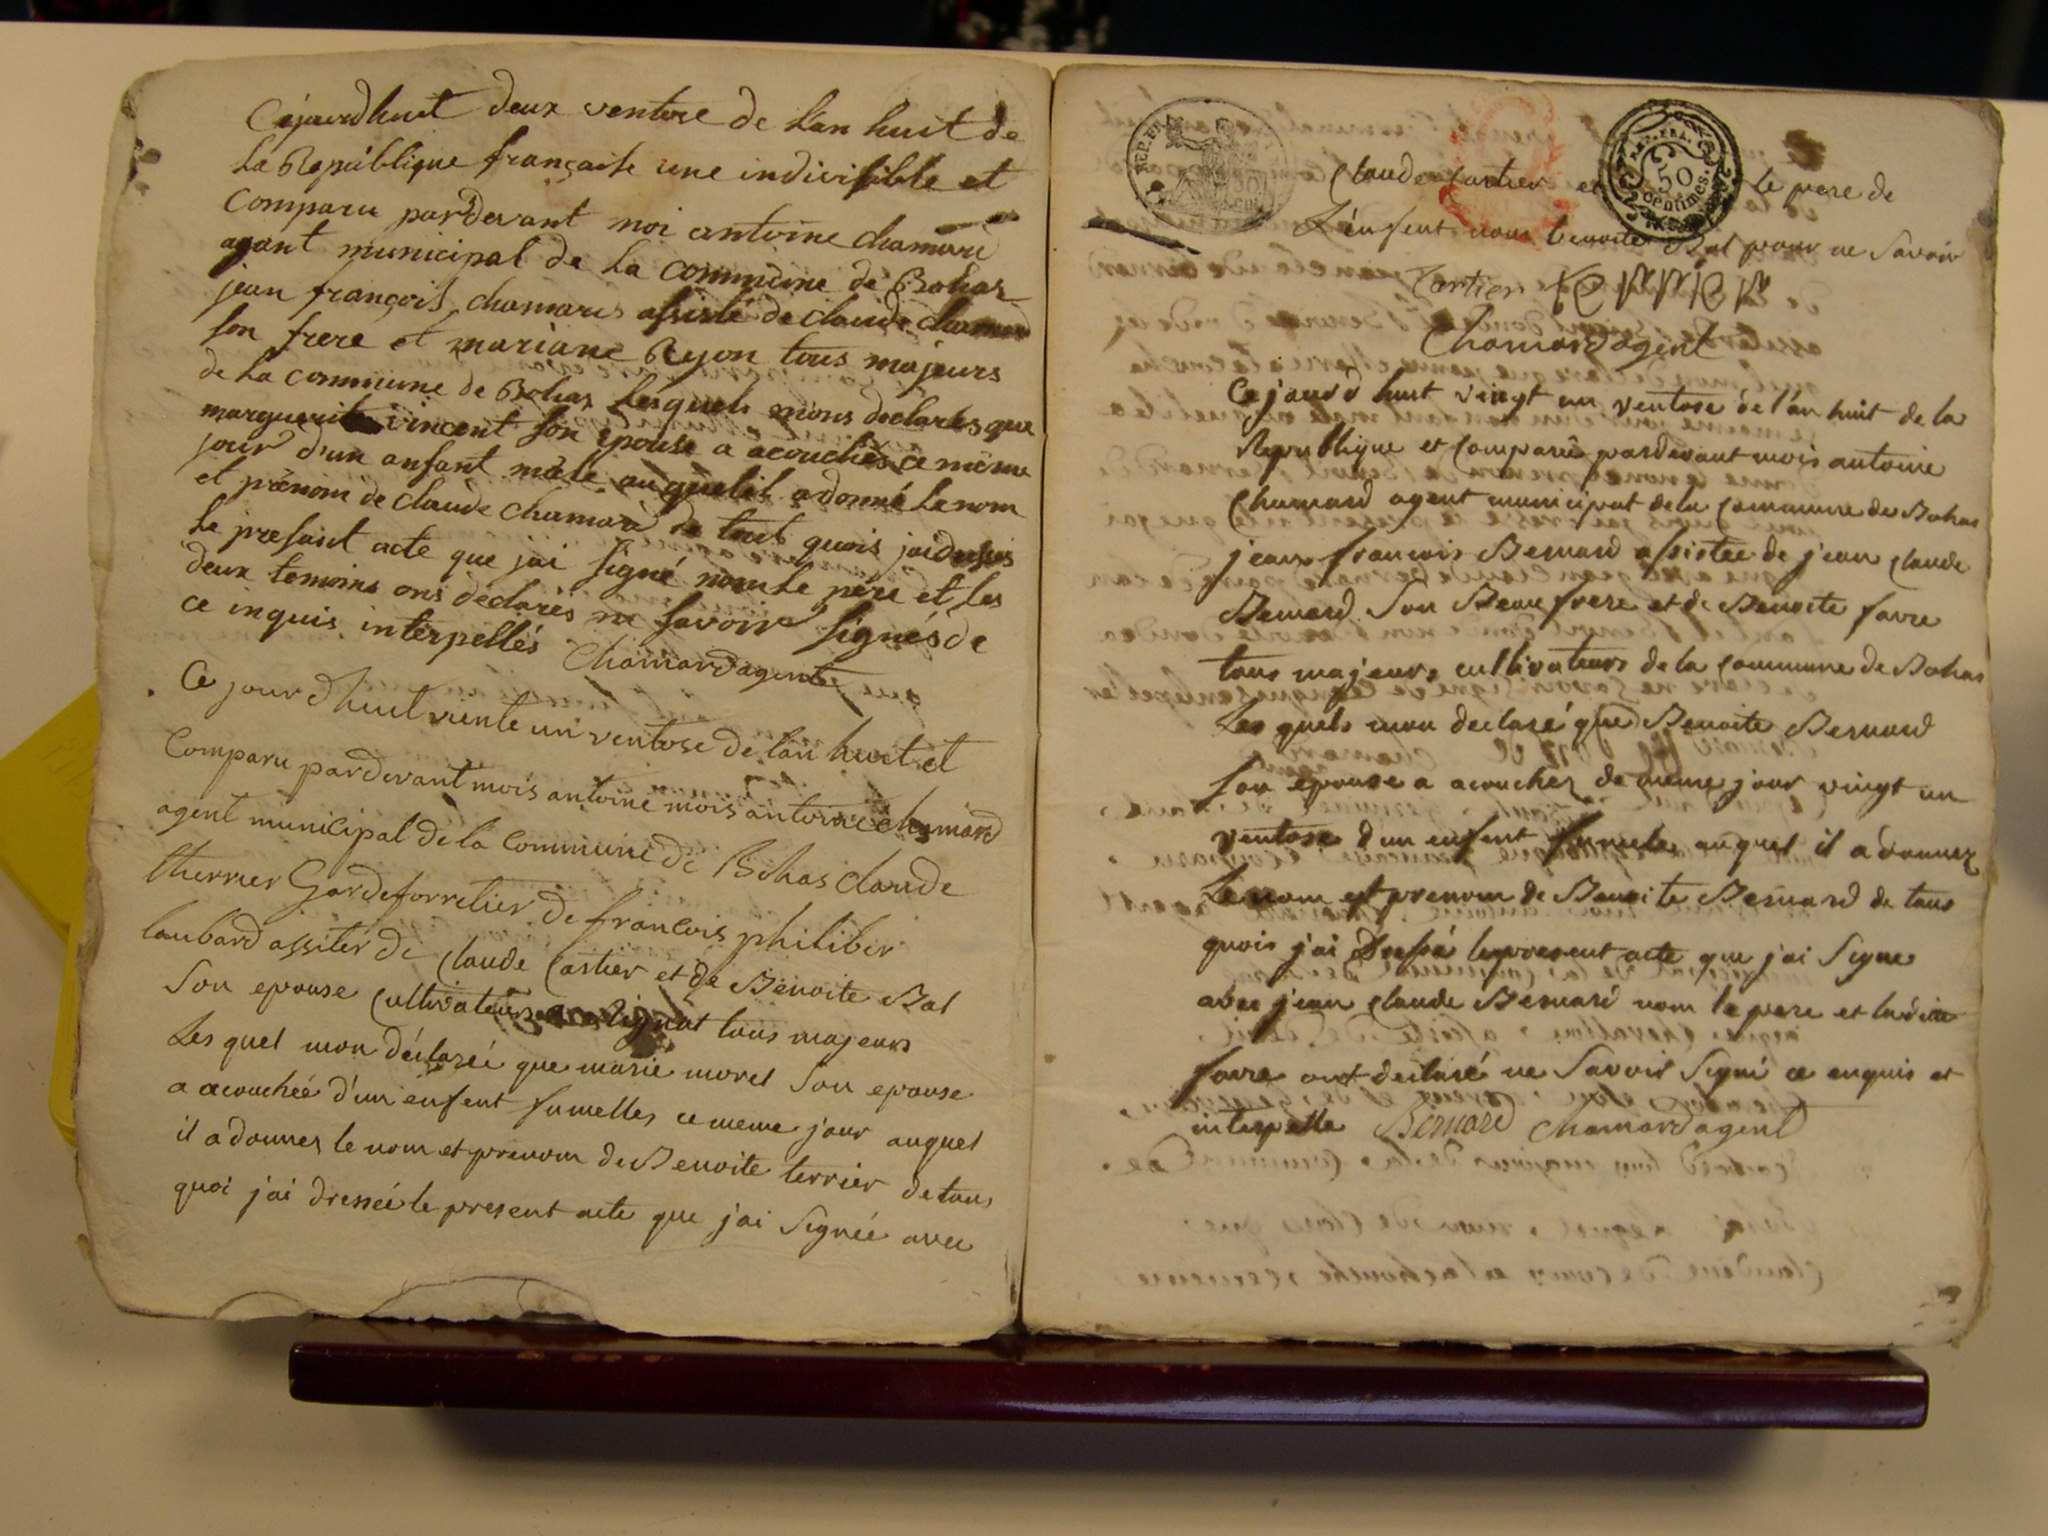 Cejourdhuit deux ventose de l'an huit de
la République française une indivisible et
comparu pardevant moi antoine chamard
agant municipal de la commune de Bohas
jean françois chamard assisté de claude chamard
son frere et mariane Reyon tous majeurs
de la commune de Bohas lesquels mons declarés que
marguerite vincent son epouse a acouchés ce même
jour d'un anfant mâle auquelil adonné le nom
et prénom de claude chamard de tout quois jaidressés
le presant acte que jai signé nom le père et les
deux temoins ons déclarés ne savoir signés de
ce inquis interpellés Chamard agent
Ce jour d'huit viente un ventose de lan huit et
comparu pardevant mois antoine mois antoine chamard
agent municipal de la commune de Bohas claude
therrier Gardeforretier de francois philiber
laubard assiter de claude Cartier et de Benoite Bal
son epouse cultivateurs tous majeurs
les quel mon déclareé que marie morel son epouse
a acouchéé d'un enfent fumelles ce meme jour auquel
il a donner le nom et prenom de Benoite terrier de tous
quoi j'ai dresséé le present acte que j'ai signéé avec
REP. FRA.
50
centimes.
claude Cartier et le pere de
L'enfent nom benoite Bal pour ne savoir
Cartier
Chamard agent
Ce jourd huit vingt un ventose de l'an huit de la
Republique et comparu pardevant mois antoine
Chamard agent municipal de la commune de Bohas
jean francois Bernard assistée de jean claude
Bernard son Beau frere et de Benoite favre
tous majeurs cultivateurs de la commune de Bohas
Les quels mon declaré que Benoite Bernard
son epouse a acoucher de meme jour vingt un
ventose d'un enfent fumele auquel il a donnez
Le nom et prenom de Benoite Bernard de tous
quois j'ai dressé le present acte que j'ai signe
avec jean claude Bernard nom le pere et ladite
favre ont declaré ne savoir signé ce enquis et
interpelle Bernard Chamard agent